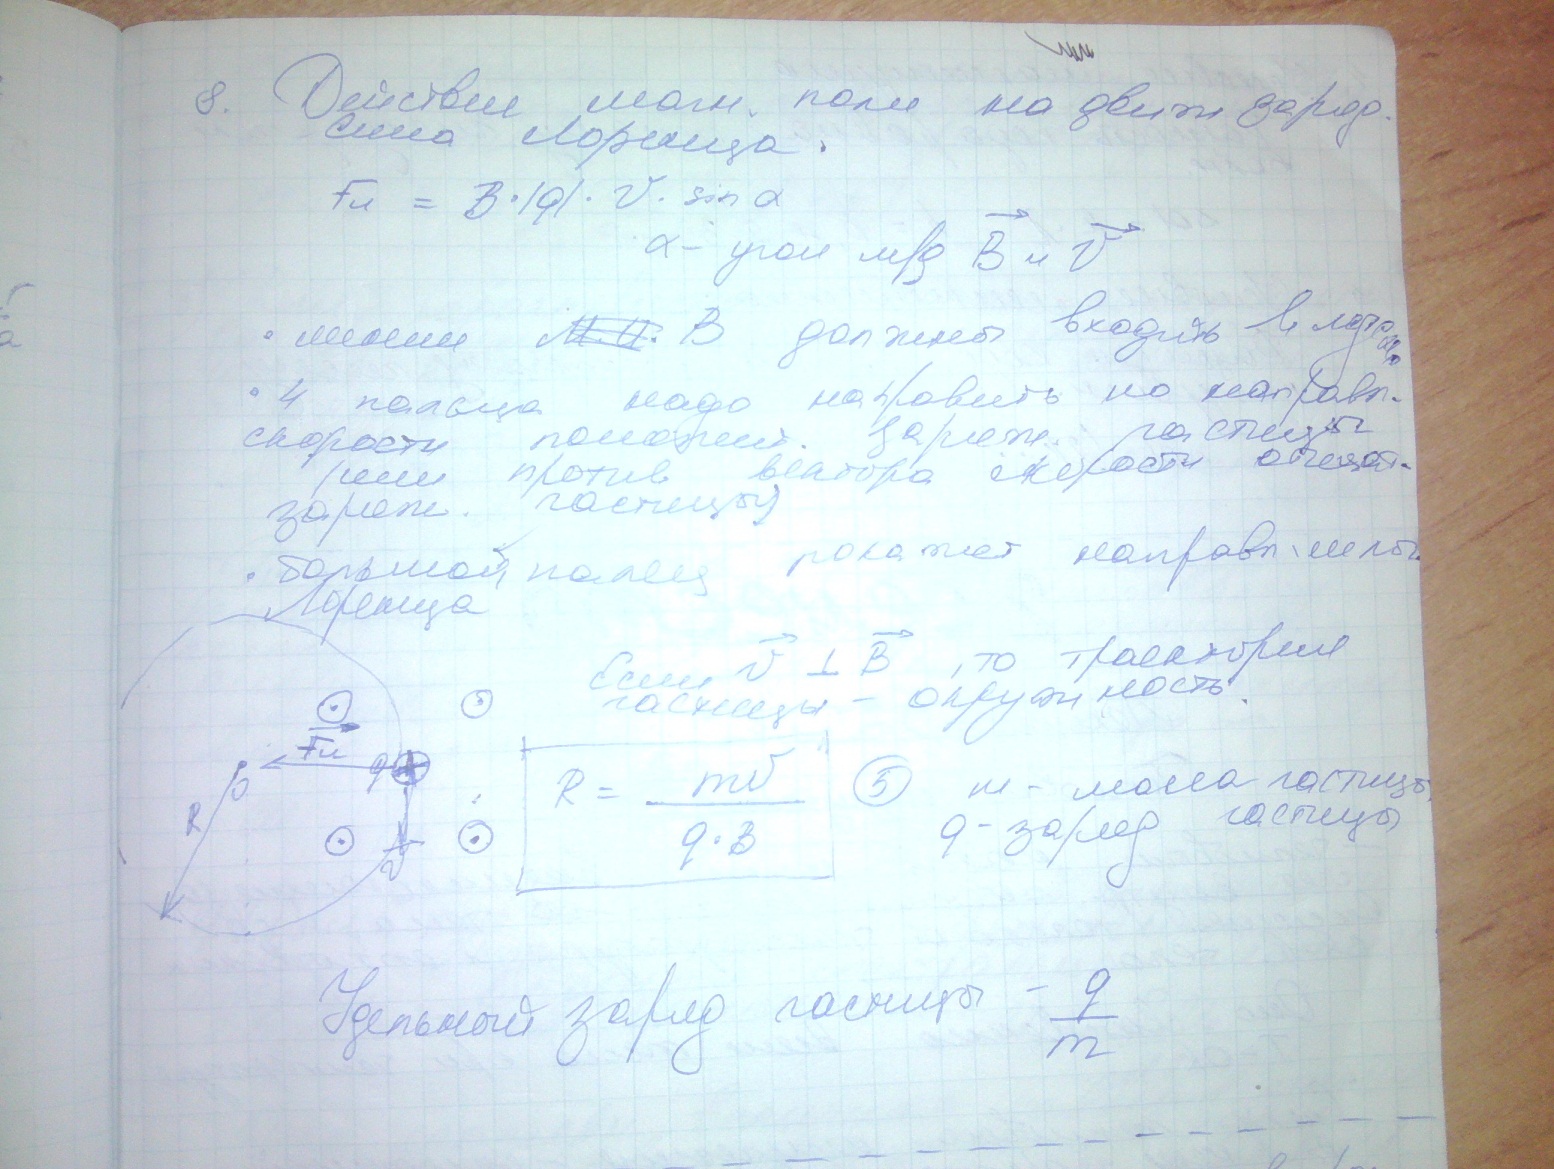 8. Действие магн. поля на движ заряд.
Сила Лоренца.
Fл = B·|q|·V·sinα
α - угол м/д B и V
· линии B должны входить в ладонь
· 4 пальца надо направить по направл.
скорости положит. заряж. частицы
(или против вектора скорости отрицат.
заряж. частицы)
· большой палец покажет направл. силы
Лоренца
Если V ⊥ B, то траектория
частицы - окружность.
Fл
q
R
V
R = mV / q·B
(5)
m - масса частицы
q - заряд частицы
Удельный заряд частицы - q/m